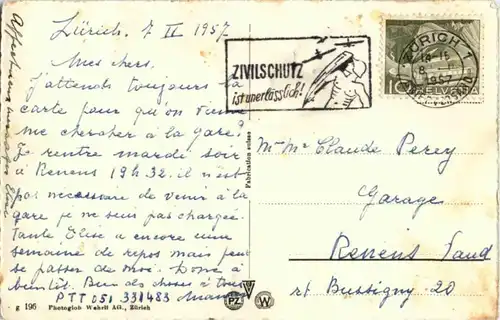 Zürich. 7 II 1957
Mes chers.
J'attends toujours ta
carte pour qu'on vienne
me chercher à la gare?
Je rentre mardi soir
à Renens 19h32. il n'est
pas nécessaire de venir à la
gare je ne suis pas chargée.
Tante Elise a encore une
semaine de repos mais peut
se passer de moi. Donc à
bientôt. Bien des choses à tous
PTT 051 331483 Maman
g 196 Photoglob Wehrli AG., Zürich
Fabrication suisse
ZIVILSCHUTZ
ist unerlässlich!
ZÜRICH 1
1957
10 HELVETIA
Mr Mme Claude Perey
Garage
Renens Vaud
rt Bussigny 20
PZ
W